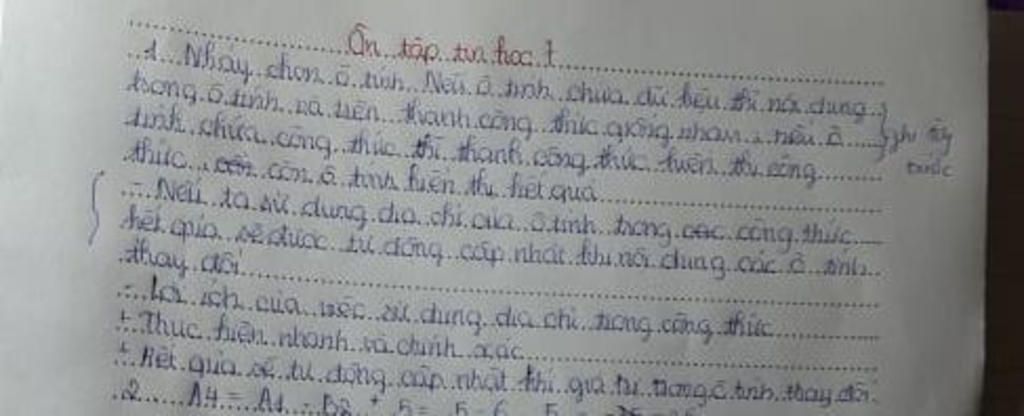 Ôn tập tin học 7
1. Nháy chọn ô tính. Nếu ô tính chứa dữ liệu thì nội dung
trong ô tính và trên thanh công thức giống nhau, nếu ô
tính chứa công thức thì thanh công thức hiện thị công
thức, còn ô tính hiện thị kết quả
ghi cây
trước
- Nếu ta sử dụng địa chỉ của ô tính trong các công thức
kết quả sẽ được tự động cập nhật khi nội dung các ô tính
thay đổi
- Lợi ích của việc sử dụng địa chỉ trong công thức
+ Thực hiện nhanh và chính xác
+ Kết quả sẽ tự động cập nhật khi giá trị trong ô tính thay đổi
2. A4 = A1